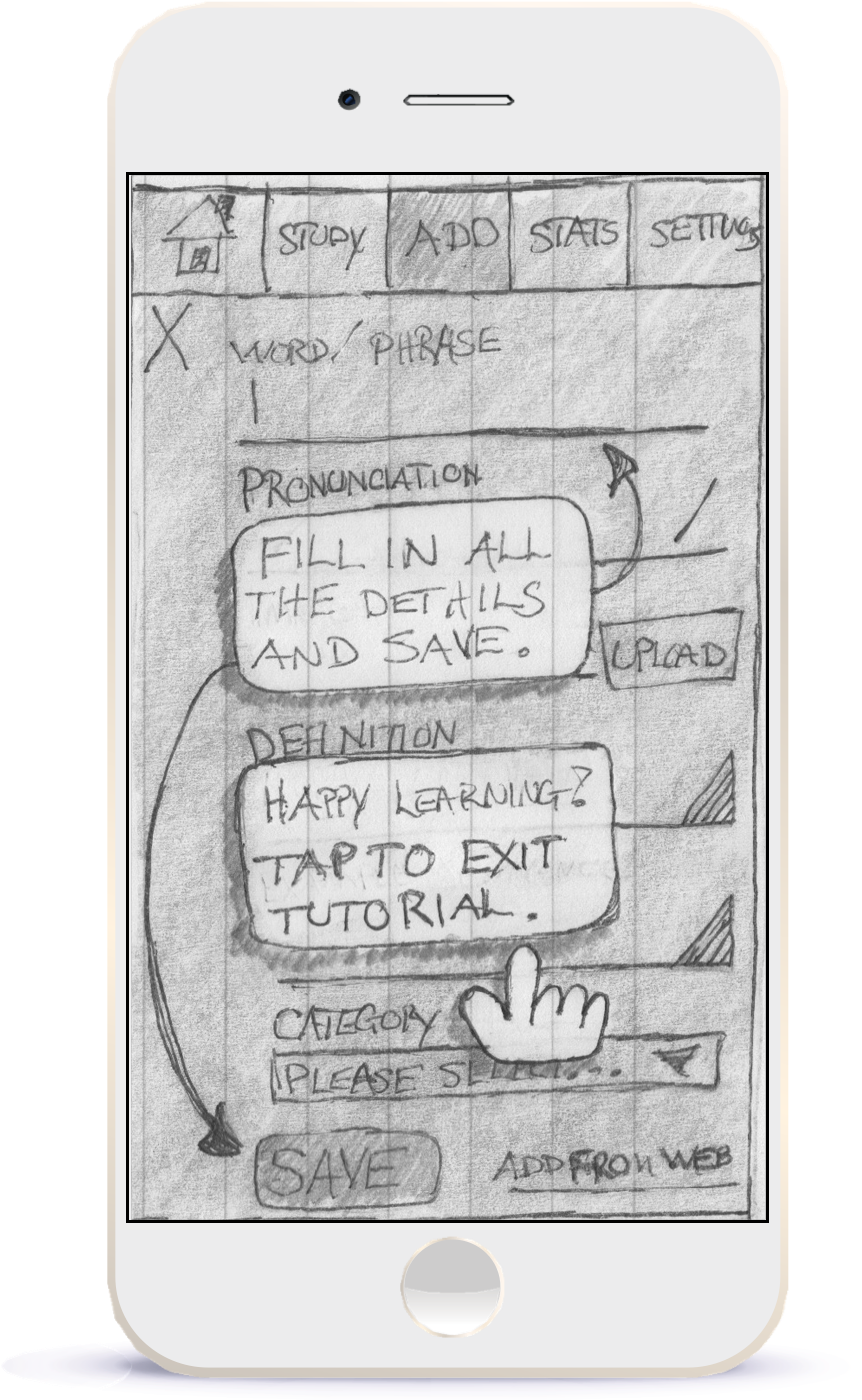 STUDY
ADD
STATS
SETTINGS
X
WORD/PHRASE
PRONUNCIATION
FILL IN ALL
THE DETAILS
AND SAVE.
UPLOAD
DEFINITION
HAPPY LEARNING!
TAP TO EXIT
TUTORIAL.
CATEGORY
PLEASE SELECT...
SAVE
ADD FROM WEB